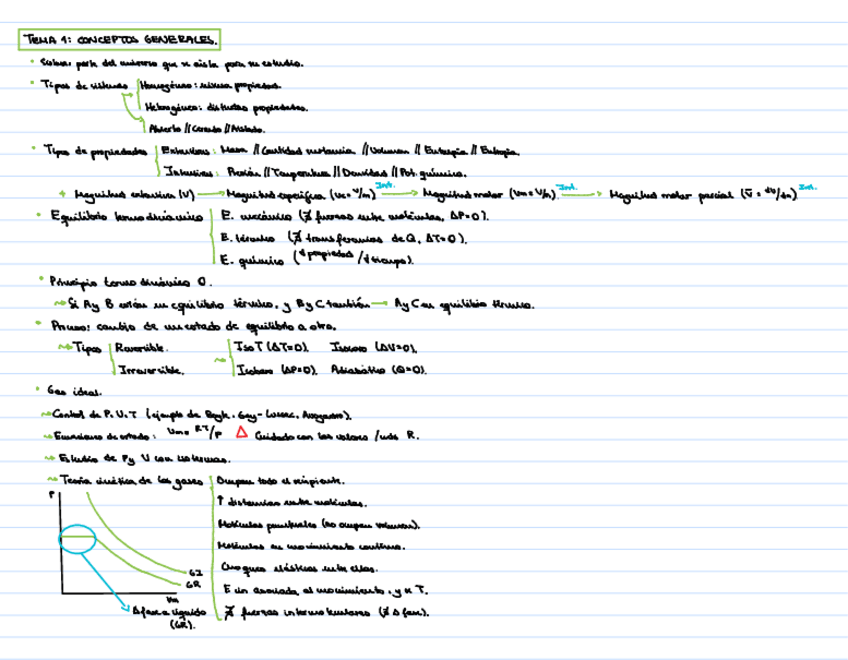 TEMA 1: CONCEPTOS GENERALES.
• Sistema: parte del universo que se aisla para su estudio.
• Tipos de sistemas Homogéneo: mismas propiedades.
Heterogéneo: distintas propiedades.
Abierto // Cerrado // Aislado.
• Tipos de propiedades Extensivas: Masa // Cantidad sustancia // Volumen // Entropía // Entalpía.
Intensivas: Presión // Temperatura // Densidad // Pot. químico.
+ Magnitud extensiva (V) → Magnitud específica (Ve = V/m) Int. → Magnitud molar (Vm = V/n) Int. → Magnitud molar parcial (v̄ = dv/dn) Int.
• Equilibrio termodinámico E. mecánico (∄ fuerzas entre moléculas, ΔP=0).
E. térmico (∄ transferencias de Q, ΔT=0).
E. químico (∀ propiedad / ∀ tiempo).
• Principio termodinámico 0.
↝ Si A y B están en equilibrio térmico, y B y C también → A y C en equilibrio térmico.
• Proceso: cambio de un estado de equilibrio a otro.
↝ Tipos Reversible. Iso T (ΔT=0). Isocoro (ΔV=0).
Irreversible. Isobaro (ΔP=0). Adiabático (Q=0).
• Gas ideal.
↝ Control de P, V, T (ejemplo de Boyle, Gay-Lussac, Avogadro).
↝ Ecuaciones de estado: Vm = RT/P Δ Cuidado con los valores /uds R.
↝ Estudio de P y V con isotermas.
↝ Teoría cinética de los gases Ocupan todo el recipiente.
↑ distancias entre moléculas.
Moléculas puntuales (no ocupan volumen).
Moléculas en movimiento continuo.
Choques elásticos entre ellas.
E cin asociada al movimiento, y a T.
∄ fuerzas intermoleculares (∄ Δ fase).
P
GI
GR
Vm
Δ fase a líquido
(GR).